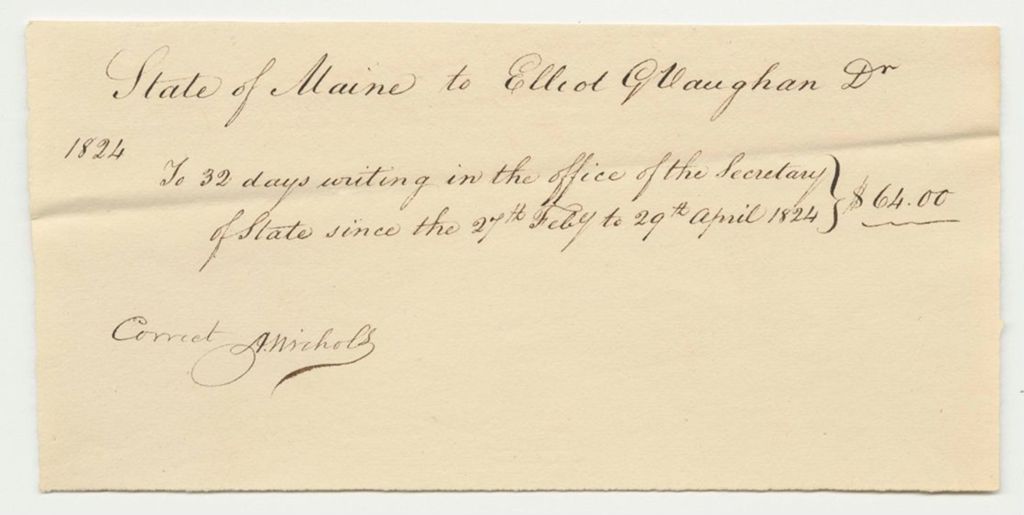 State of Maine to Elliot G Vaughan Dr
1824
To 32 days writing in the office of the Secretary
of State since the 27th Feby to 29th April 1824 } $64.00
Correct A. Nichols